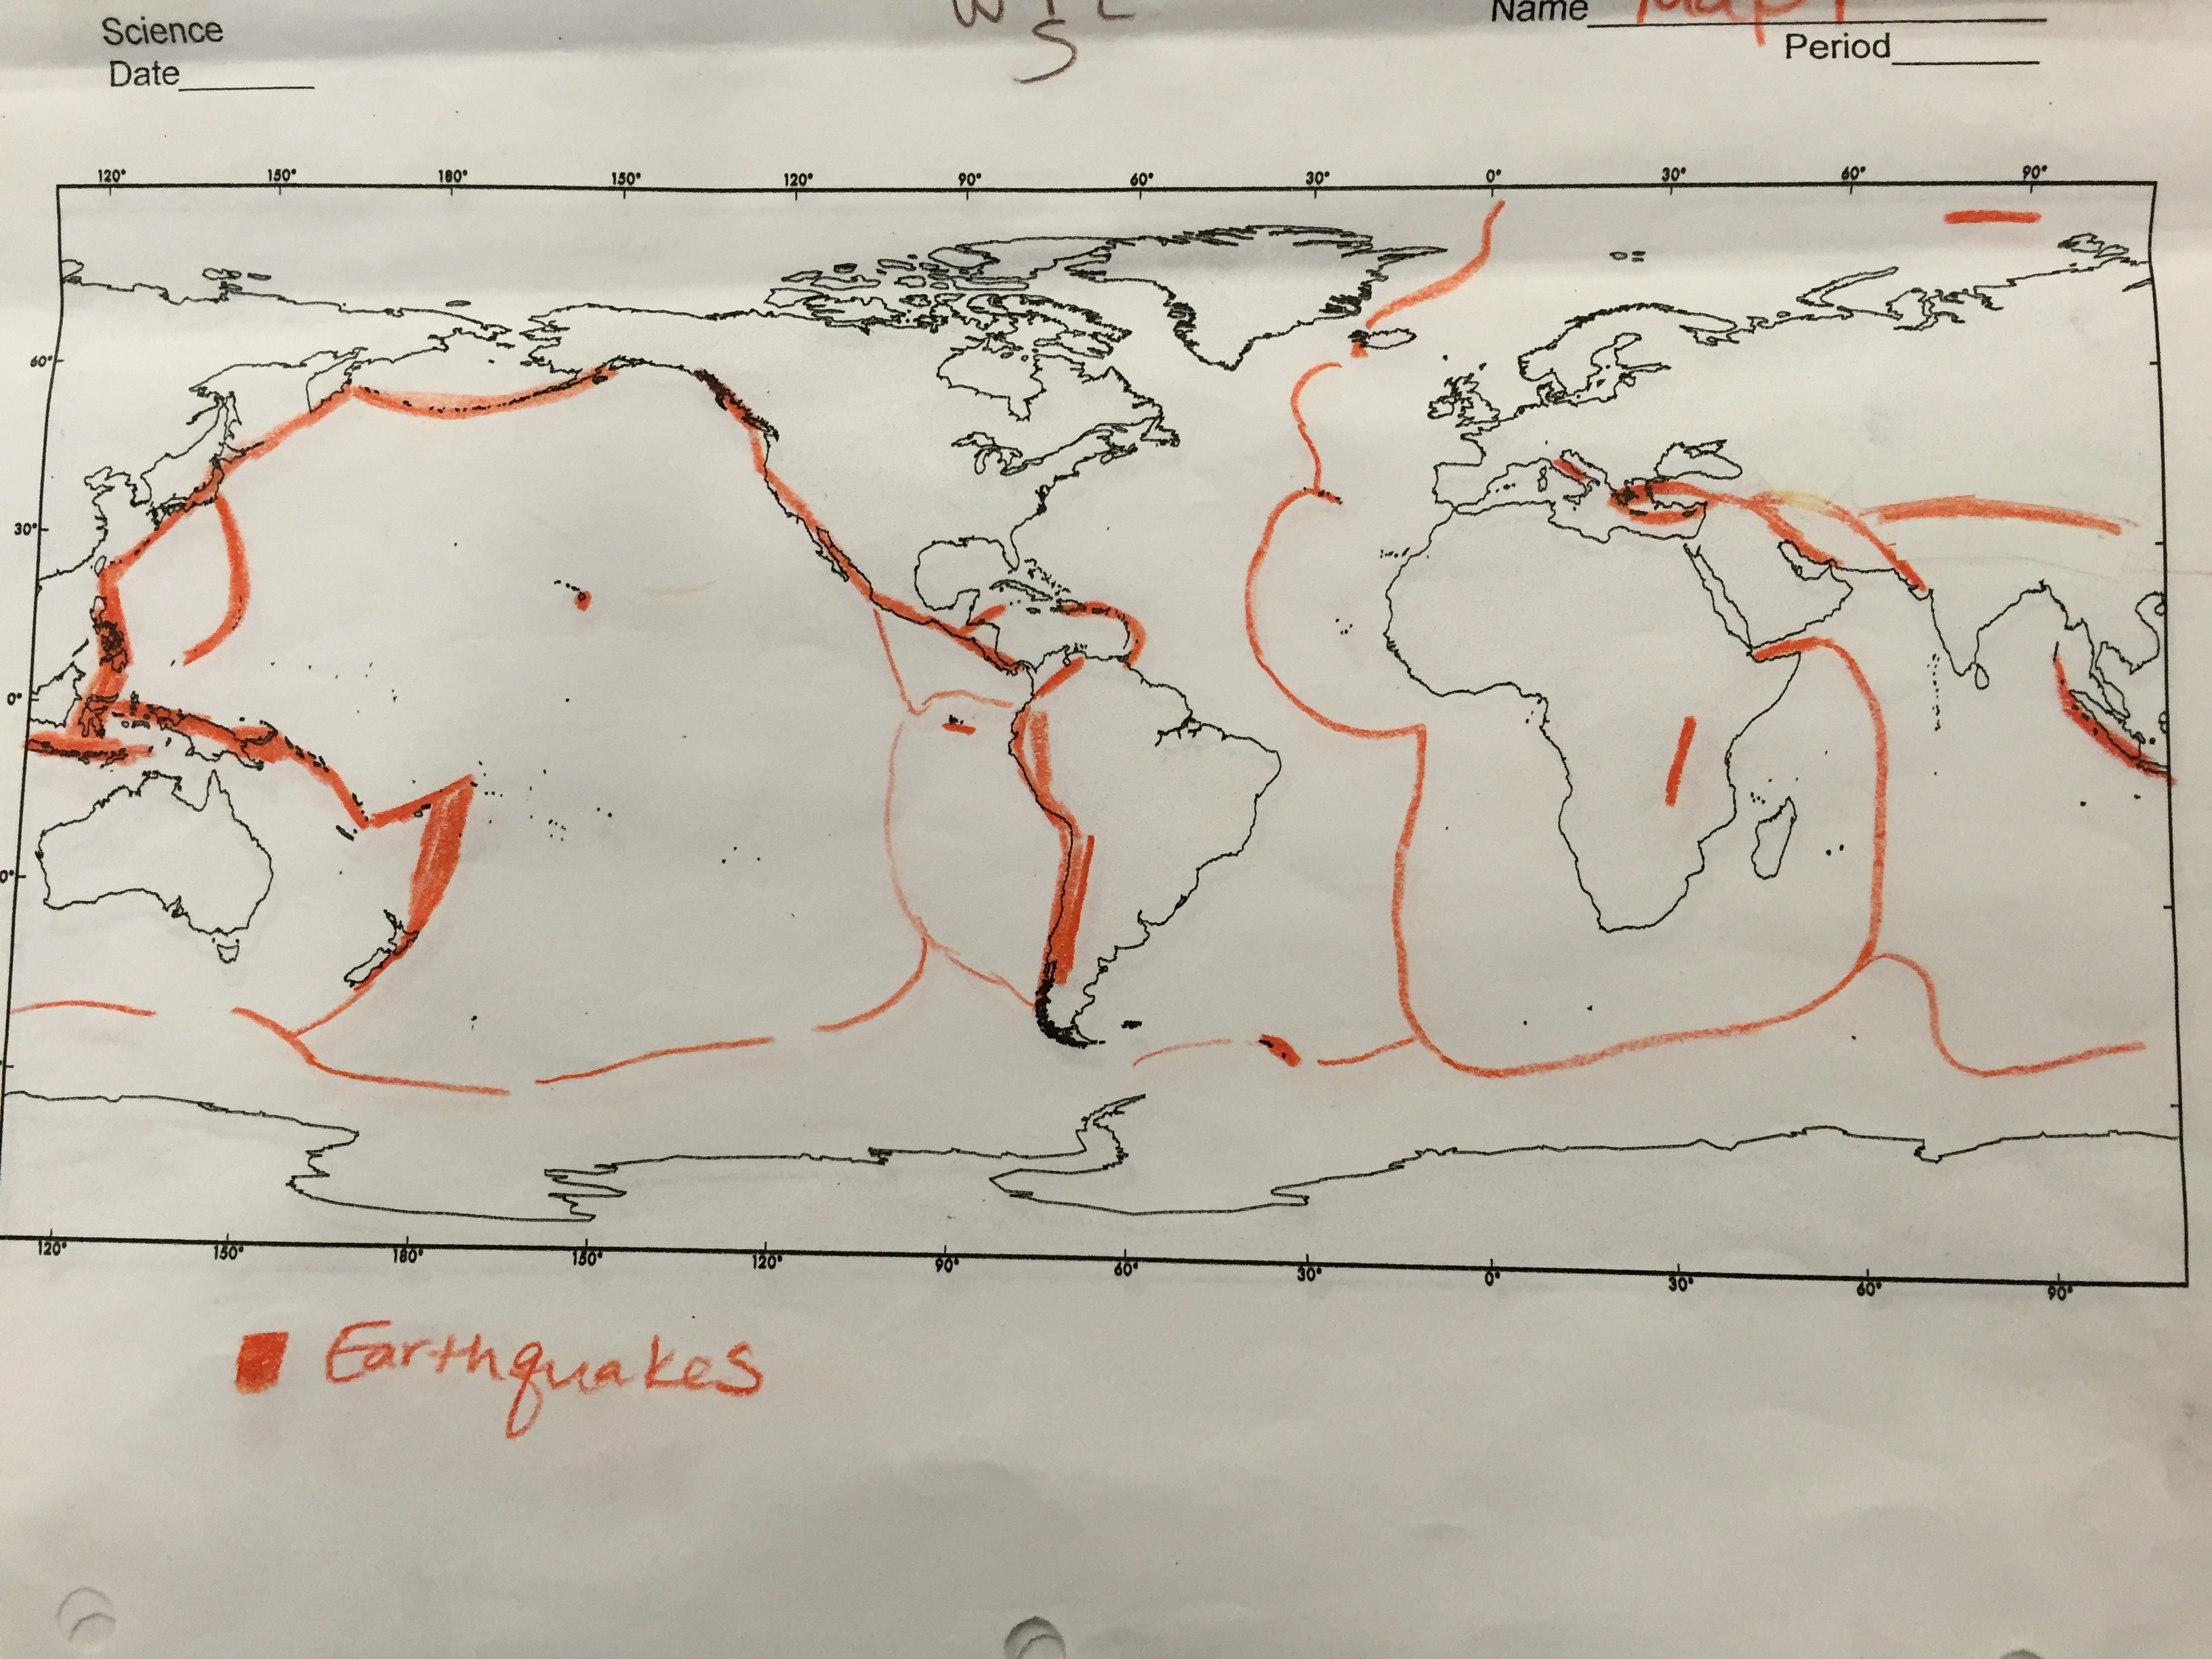 Science
Name
Date
S
Period
120° 150° 180° 150° 120° 90° 60° 30° 0° 30° 60° 90°
60°
30°
0°
120° 150° 180° 150° 120° 90° 60° 30° 0° 30° 60° 90°
Earthquakes